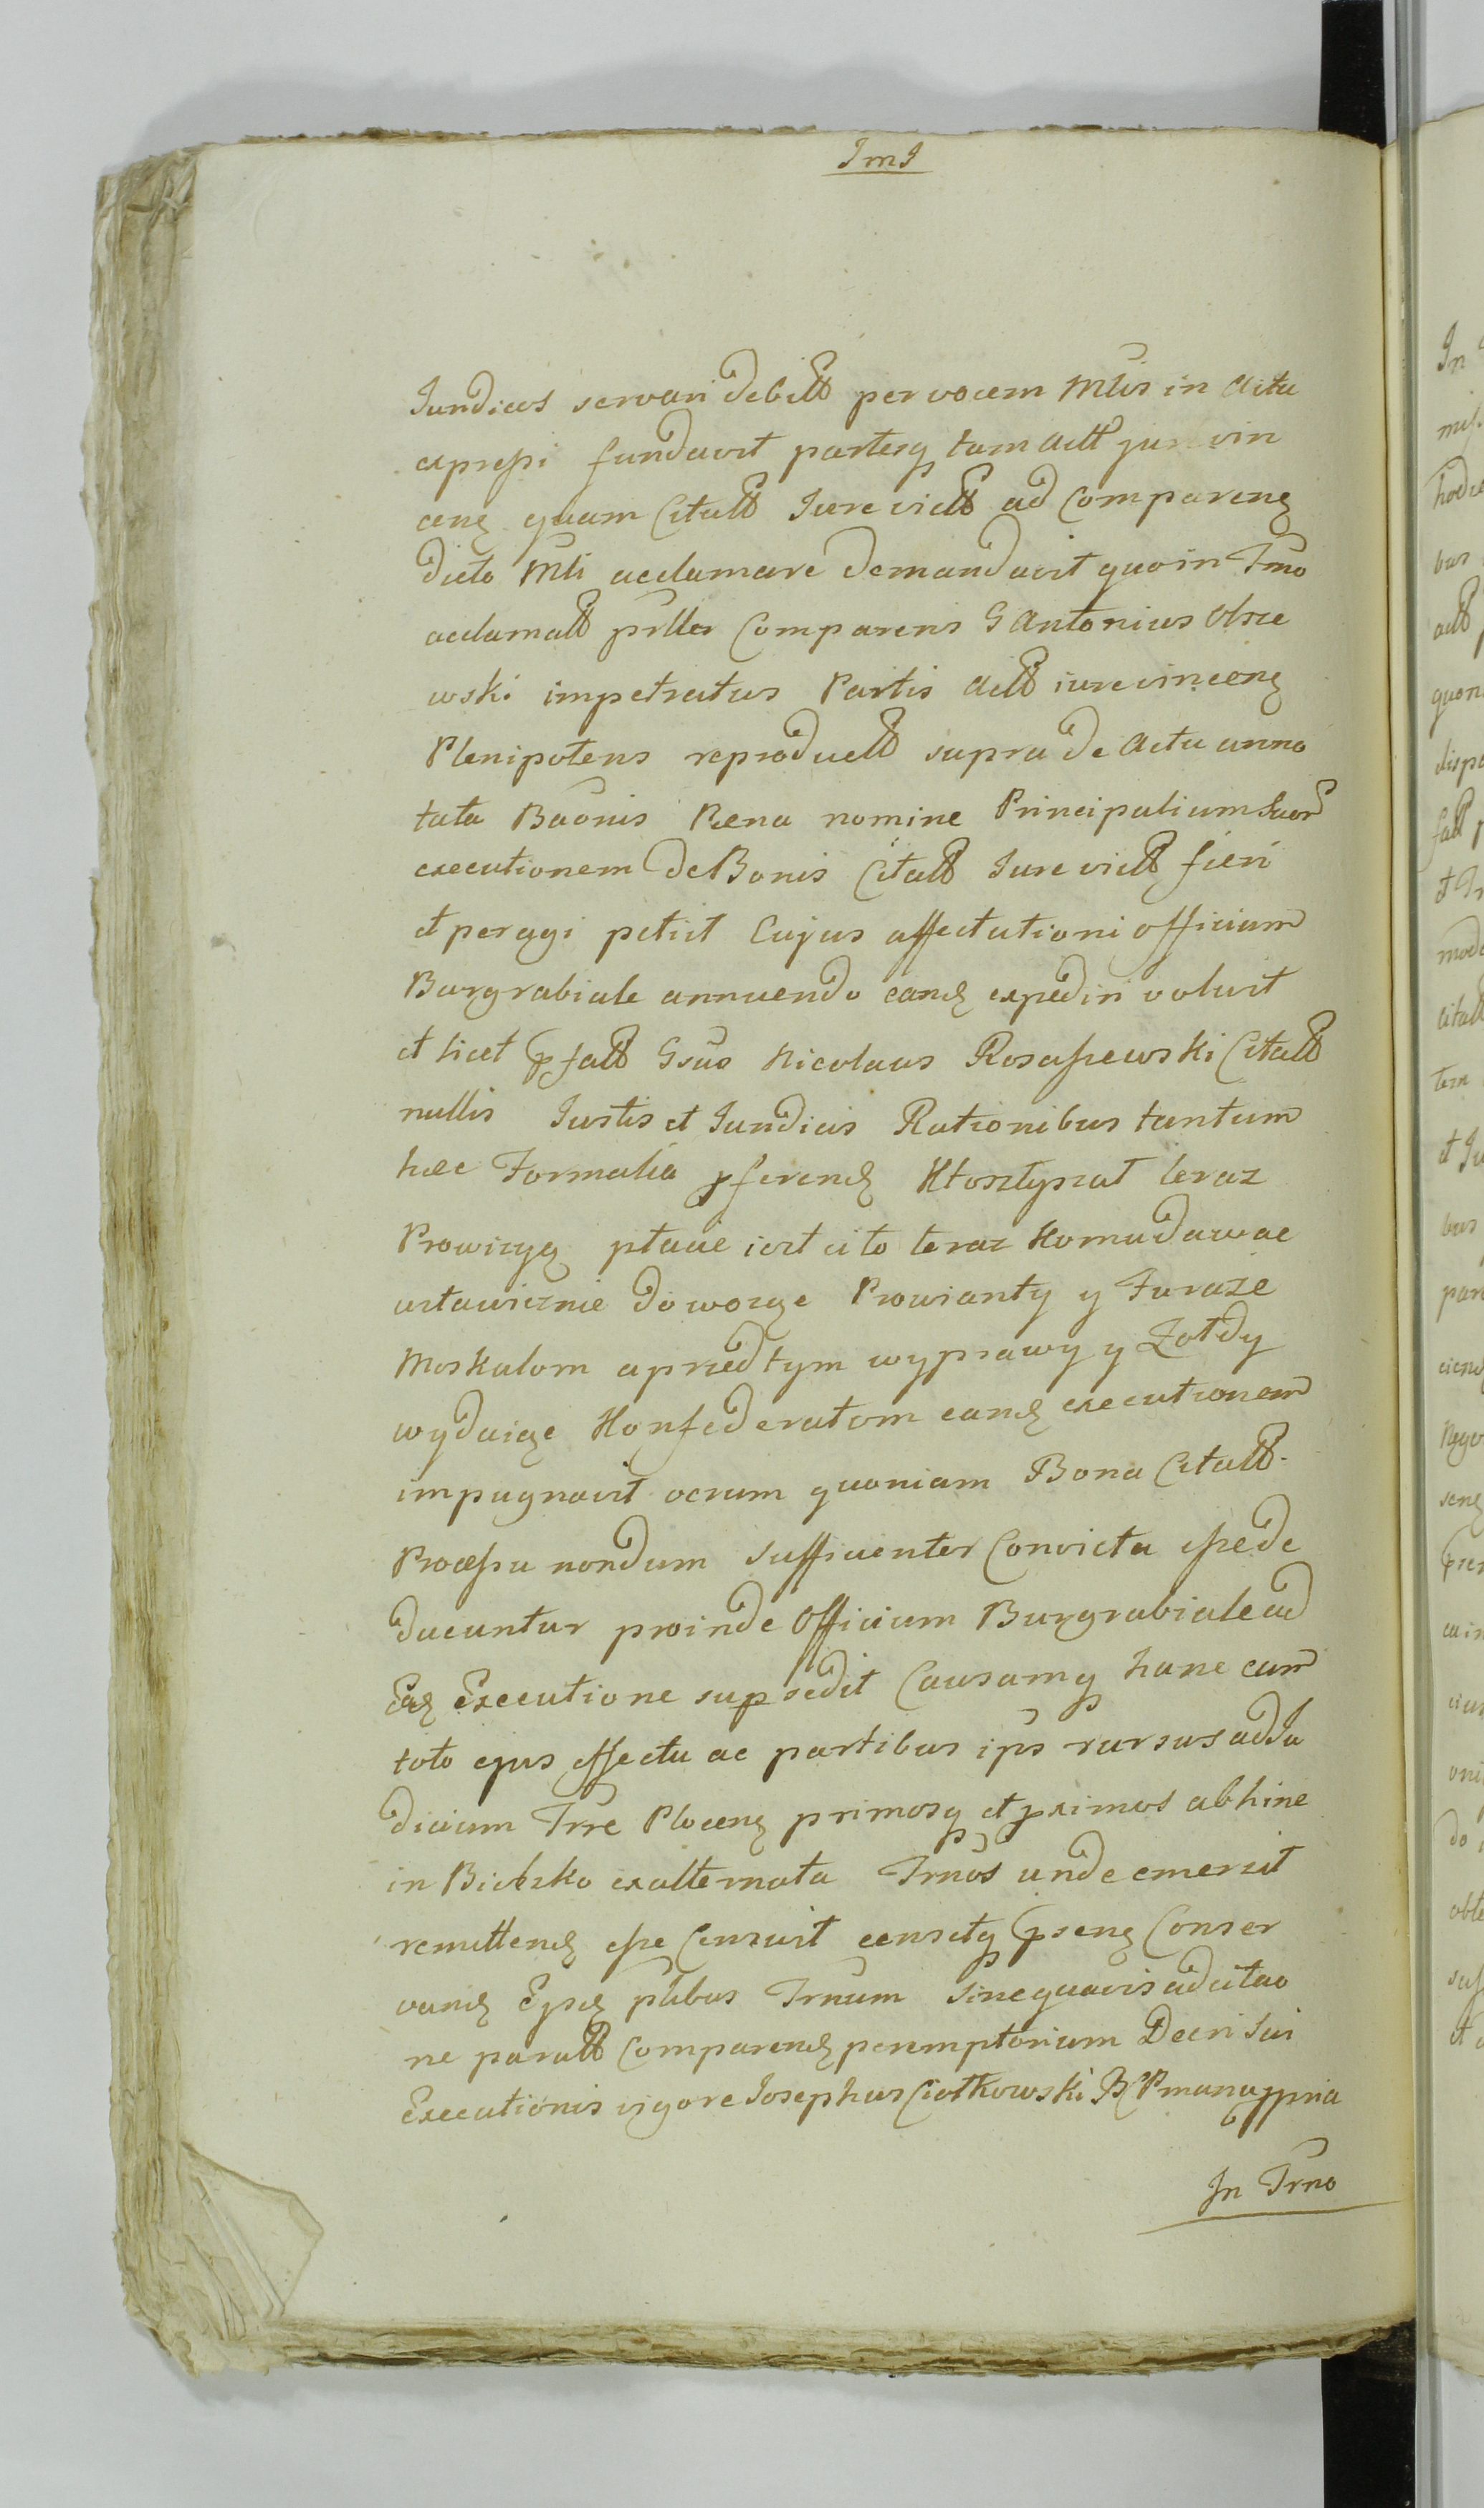 JmJ
Juridicos servari debitt per vocem Mlis in Actu
expressi fundavit partesq tam Actt jure vin
cenę quam Citatt Jure victt ad Comparenę
dicto Mli acclamare demandavit quo in Trno
acclamatt prlter Comparens G Antonius Olsze
wski impetratus Partis Actt iurevincenę
Plenipotens reproductt supra de Actu anno
tata Baonis Poena nomine Principalium suor
executionem de Bonis Citatt Jure victt fieri
et peragi petiit Cujus affectationi officium
Burgrabiale annuendo eandę expediri voluit
et licet pfatt Gsus Nicolaus Rosassewski Citatt
nullis Justis et Juridicis Rationibus tantum
haec Formalia pferendę Kto sztyszat teraz
Prowizyą płacie iest ci to teraz komu dawac
ustawicznie dowoząc Prowianty y Furaze
Moskalom a przed tym wyprawy y Zołdy
wydaiąc Konfederatom eandę executionem
impugnavit verum quoniam Bona Citatt
Processu nondum sufficienter Convicta esse de
ducuntur proinde Officium Burgrabiale ad
Eaę Executione supsedit Causamq hanc cum
toto ejus effectu ac partibus ips rursus ad Ju
dicium Trre Plocenę primosq et pximos abhinc
in Bielsko exalternata Trnos unde emersit
remittendę esse Censuit censetq psenę Conser
vandę Ejsdę ptibus Trnum sine quavis adcitao
ne paratt Comparendę peremptorium Decri sui
Executionis vigore Josephus Ciotkowski B P manu ppria
In Trno